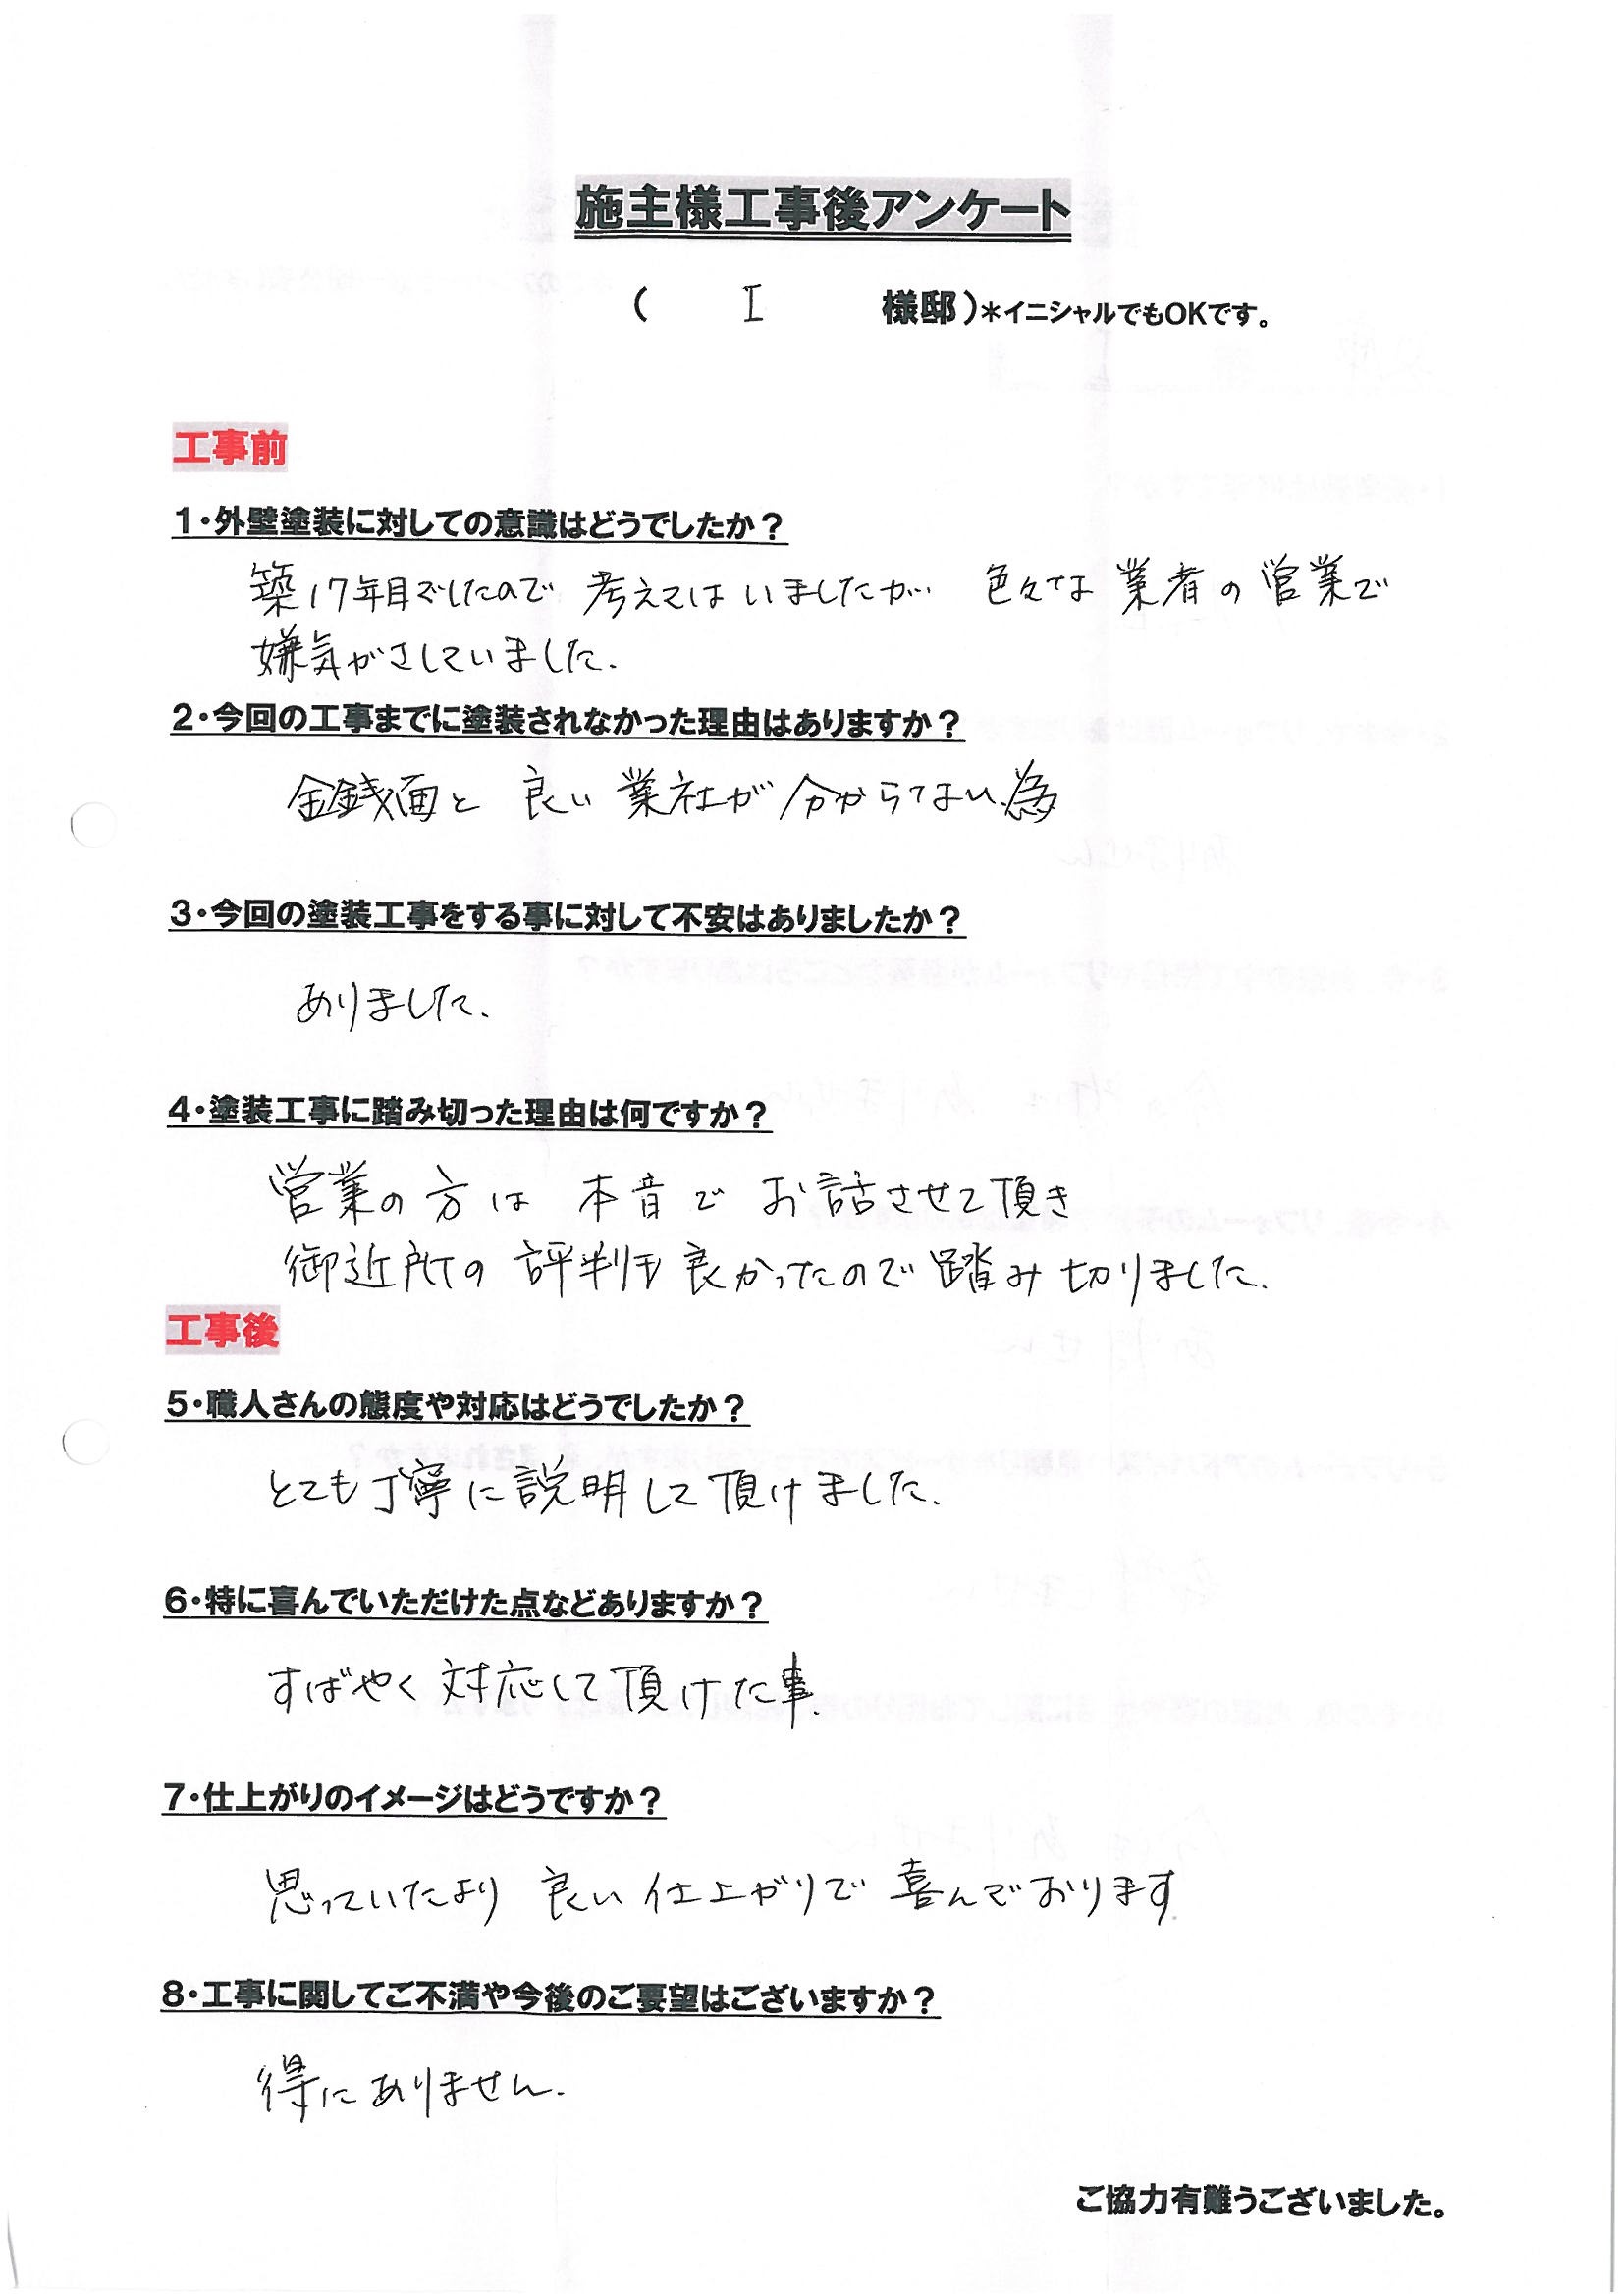 施主様工事後アンケート
( I 様邸)*イニシャルでもOKです。
工事前
1・外壁塗装に対しての意識はどうでしたか?
築17年目でしたので 考えてはいましたが… 色々な 業者の営業で
嫌気がさしていました.
2・今回の工事までに塗装されなかった理由はありますか?
金銭面と 良い 業社が 分からない為
3・今回の塗装工事をする事に対して不安はありましたか?
ありました.
4・塗装工事に踏み切った理由は何ですか?
営業の方は 本音で お話させて頂き
御近所の 評判も 良かったので 踏み切りました.
工事後
5・職人さんの態度や対応はどうでしたか?
とても丁寧に説明して頂けました.
6・特に喜んでいただけた点などありますか?
すばやく対応して頂けた事.
7・仕上がりのイメージはどうですか?
思っていたより 良い仕上がりで 喜んでおります.
8・工事に関してご不満や今後のご要望はございますか?
得にありません.
ご協力有難うございました。